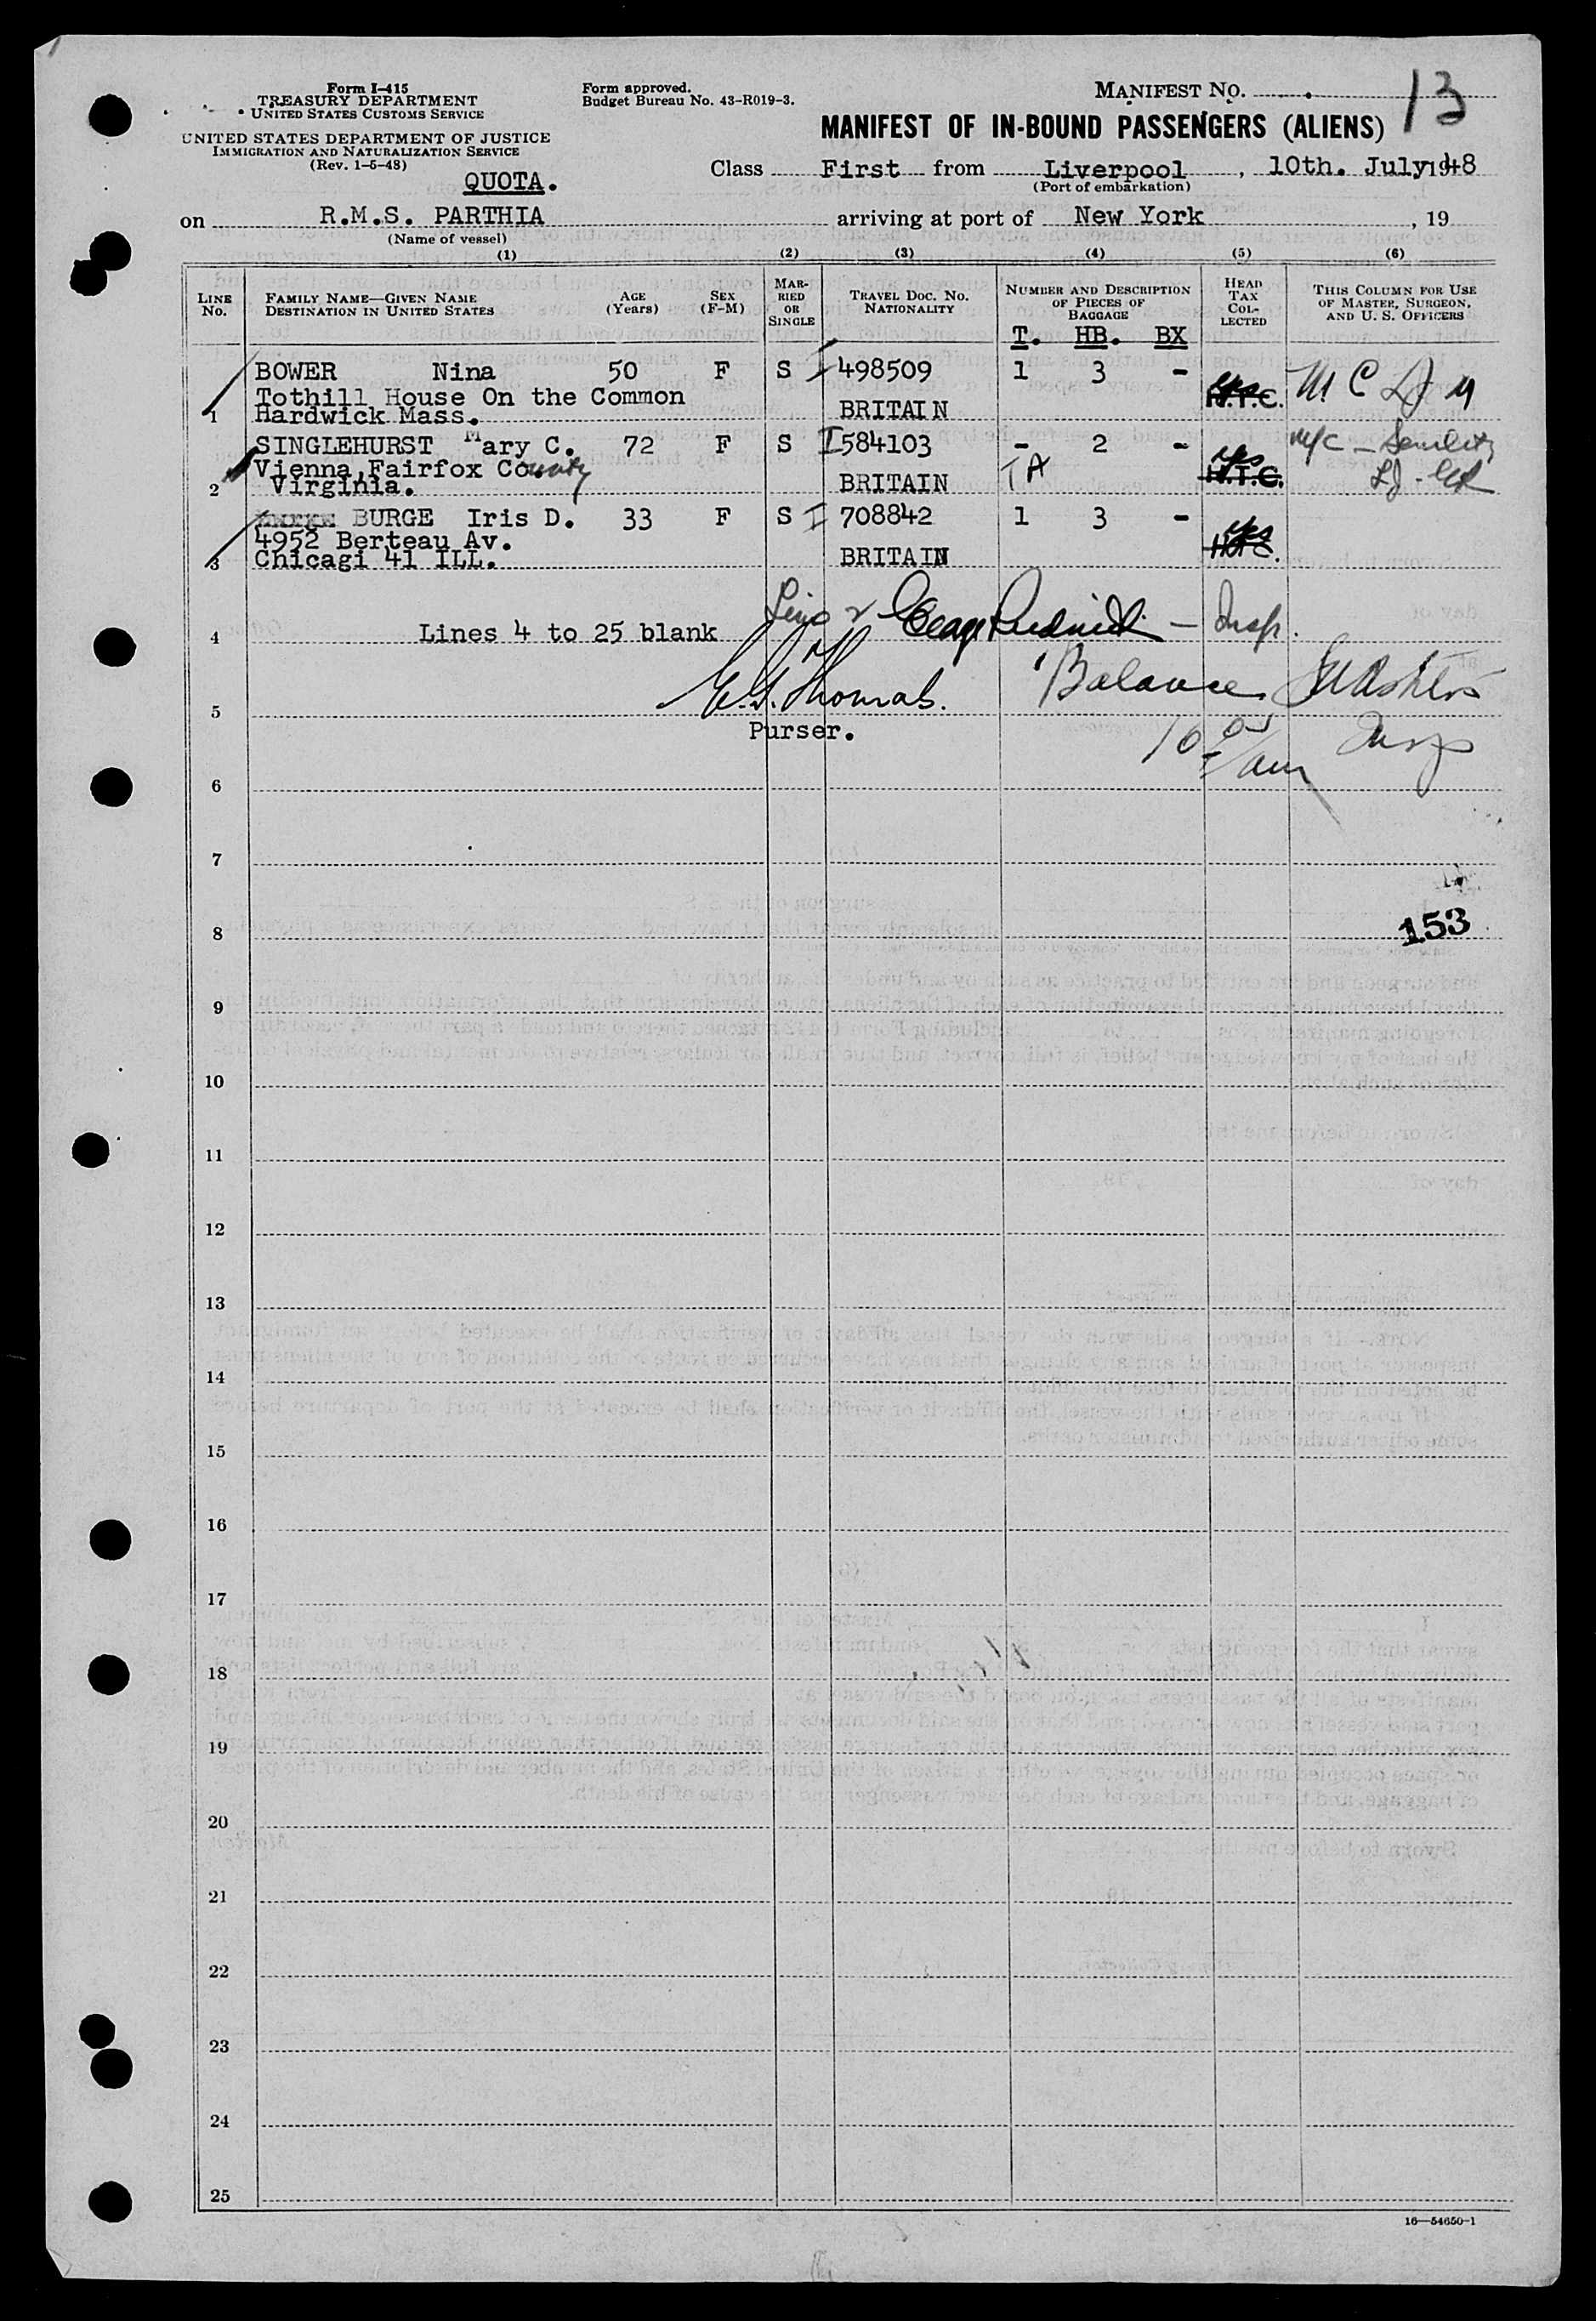 Form I-415
TREASURY DEPARTMENT
UNITED STATES CUSTOMS SERVICE
UNITED STATES DEPARTMENT OF JUSTICE
IMMIGRATION AND NATURALIZATION SERVICE
(Rev. 1-5-48)
QUOTA.
Form approved.
Budget Bureau No. 43-R019-3.
MANIFEST NO. 13
MANIFEST OF IN-BOUND PASSENGERS (ALIENS)
Class First from Liverpool, 10th. July 1948
(Port of embarkation)
on R.M.S. PARTHIA arriving at port of New York, 19
(Name of vessel)
(1) (2) (3) (4) (5) (6)
LINE No. FAMILY NAME—GIVEN NAME DESTINATION IN UNITED STATES AGE (Years) SEX (F-M) MARRIED OR SINGLE TRAVEL DOC. NO. NATIONALITY NUMBER AND DESCRIPTION OF PIECES OF BAGGAGE HEAD TAX COLLECTED THIS COLUMN FOR USE OF MASTER, SURGEON, AND U. S. OFFICERS
T. HB. BX
BOWER Nina 50 F S I 498509 1 3 -
Tothill House On the Common
1 Hardwick Mass. BRITAIN yes H.T.C.
SINGLEHURST Mary C. 72 F S I 584103 - 2 -
Vienna,Fairfox County
2 Virginia. BRITAIN TA yes H.T.C.
BURGE Iris D. 33 F S I 708842 1 3 -
4952 Berteau Av.
3 Chicagi 41 ILL. BRITAIN yes
4 Lines 4 to 25 blank Insp.
5 E.G. Thomas. Balance
Purser. Insp
6
7
8 153
9
10
11
12
13
14
15
16
17
18
19
20
21
22
23
24
25
16—54650-1